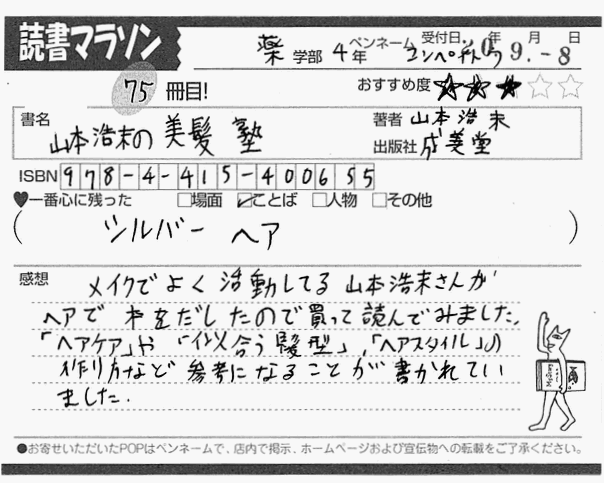 読書マラソン
薬 学部 4年 ペンネーム コンペイトウ 受付日 '09年 9月 -8日
75 冊目!
おすすめ度 ★★★☆☆
書名 山本浩未の美髪塾
著者 山本浩未
出版社 成美堂
ISBN 978-4-415-400655
♥一番心に残った □場面 ☑ことば □人物 □その他
( シルバーヘア )
感想 メイクでよく活動してる山本浩未さんが
ヘアで本をだしたので買って読んでみました。
「ヘアケア」や「似合う髪型」,「ヘアスタイル」の
作り方など参考になることが書かれてい
ました.
●お寄せいただいたPOPはペンネームで、店内で掲示、ホームページおよび宣伝物への転載をご了承ください。